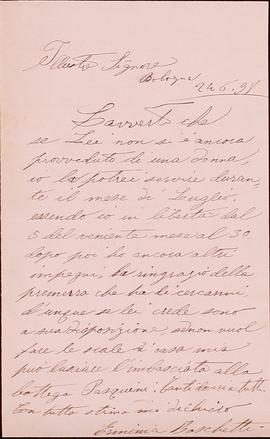 Illustre Signore
Bologna
24. 6. 97
L'avverto che
se Lei non si è ancora
provveduto di una donna,
io la potrei servire duran-
te il mese di Luglio,
essendo io in libertà dal
5 del veniente mese al 30
dopo poi ho ancora altri
impegni; la ringrazio della
premura che ha di cercarmi,
dunque se lei crede sono
a sua disposizione, se non vuol
fare le scale di casa mia
può lasciare l'imbasciata alla
bottega Pasquini. tutti
Con tutta stima mi dichiaro
Erminia Boschetti